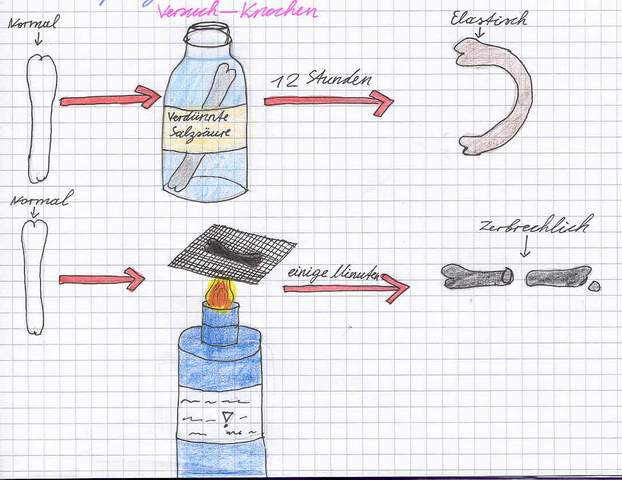 Versuch—Knochen
Normal
Elastisch
12 Stunden
Verdünnte
Salzsäure
Normal
Zerbrechlich
einige Minuten